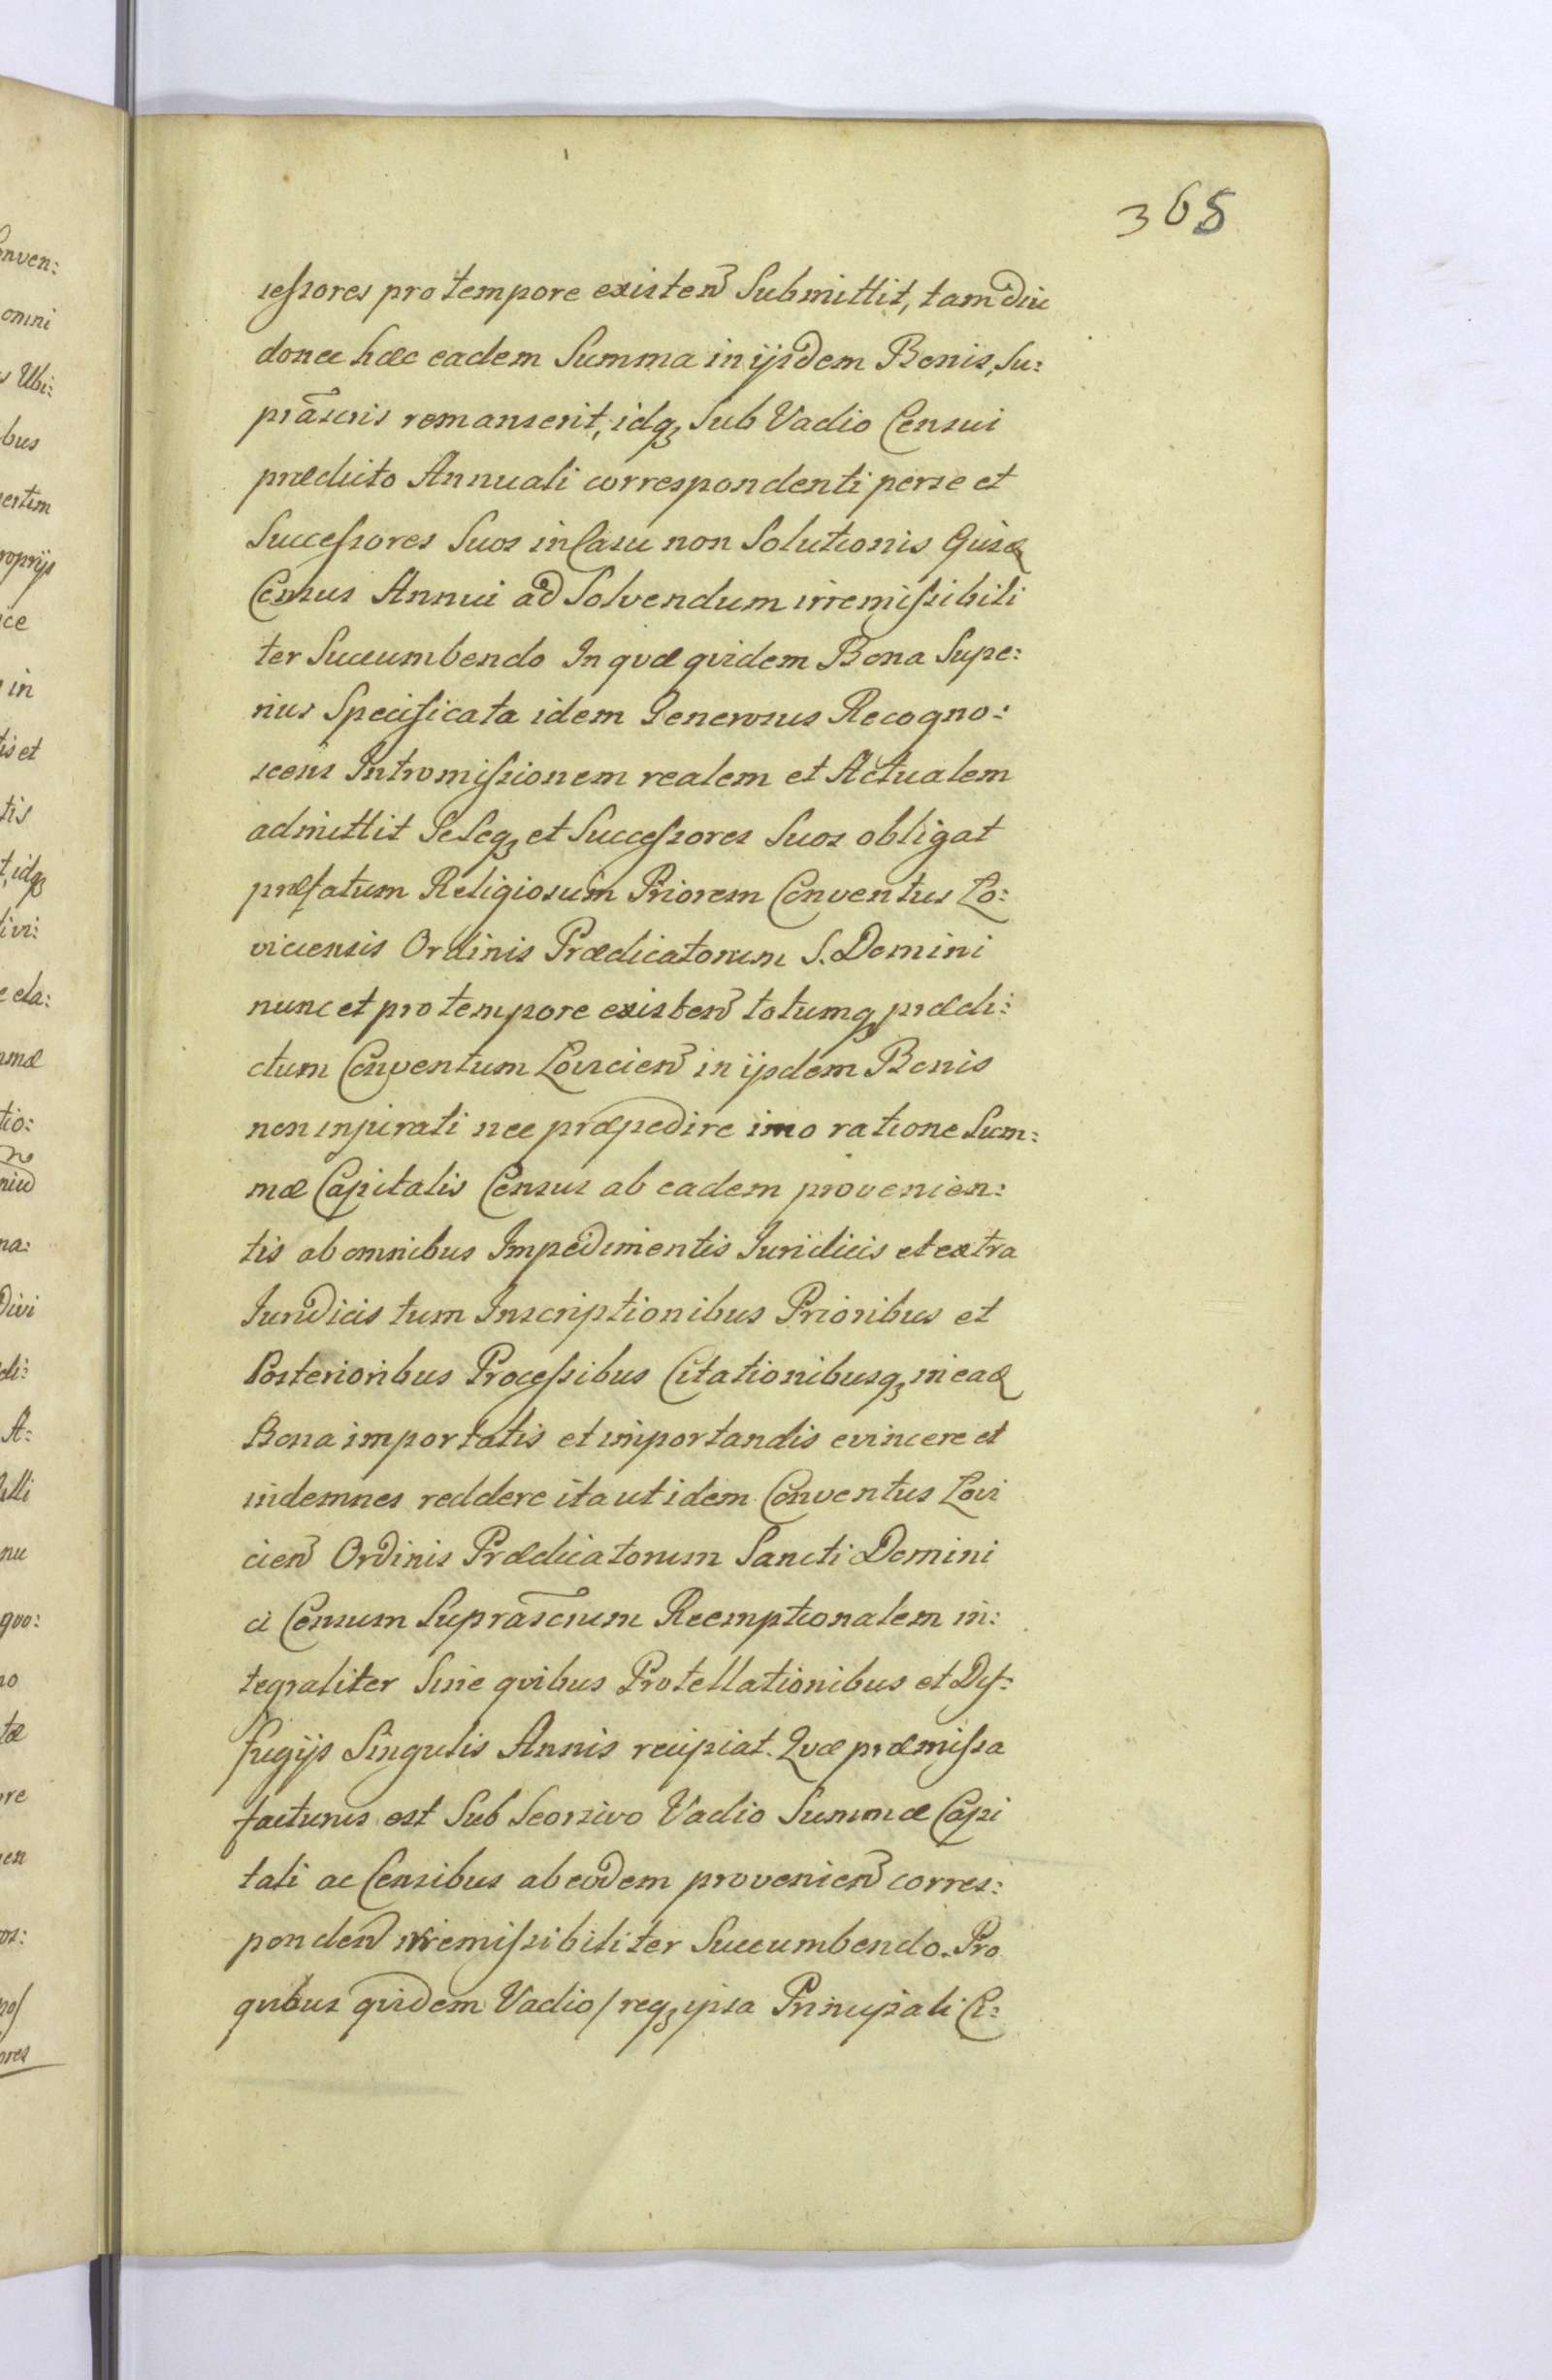 365
sessores pro tempore existen Submittit, tam diu
donec hæc eadem Summa in ijsdem Bonis, Su:
prãscris remanserit, idq₃ Sub Vadio Censui
prædicto Annuali correspondenti per se et
Successores Suos in Casu non Solutionis
Census Annui ad Solvendum irremissibili
ter Succumbendo In quæ quidem Bona Supe:
rius Specificata idem Generosus Recogno:
scens Intromissionem realem et Actualem
admittit Seseq₃ et Successores Suos obligat
præfatum Religiosum Priorem Conventus Lo:
viciensis Ordinis Prædicatorum S. Domini
nunc et pro tempore existen totumq₃ prædi:
ctum Conventum Lovicien in ijsdem Bonis
non injurati nec præpedire imo ratione Sum:
mæ Capitalis Census ab eadem provenien:
tis ab omnibus Impedimentis Iuridicis et extra
Iuridicis tum Inscriptionibus Prioribus et
Posterioribus Processibus Citationibusq₃ in ead
Bona importatis et importandis evincere et
indemnes reddere ita ut idem Conventus Lovi
cien Ordinis Prædicatorum Sancti Domini
ci Censum Suprãscrum Reemptionalem in:
tegraliter Sine quibus Protellationibus et Dyf:
fugijs Singulis Annis recipiat. Quæ præmissa
facturus est Sub Seorsivo Vadio Summæ Capi
tali ac Censibus ab eodem provenien corres:
ponden irremissibiliter Succumbendo. Pro
quibus quidem Vadio / req₃ ipsa Principali Ci:
onven:
omni
Ubi:
bus
ertim
roprijs
ce
in
tis et
tis
t, idq₃
ivi:
e cla:
mæ
tio:
na:
Divi
di:
A:
nu
quo:
no
tæ
re
en
os:
nos
ores